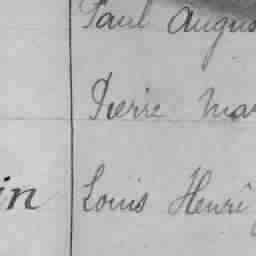 Paul Augus
Pierre Mar
in Louis Henri